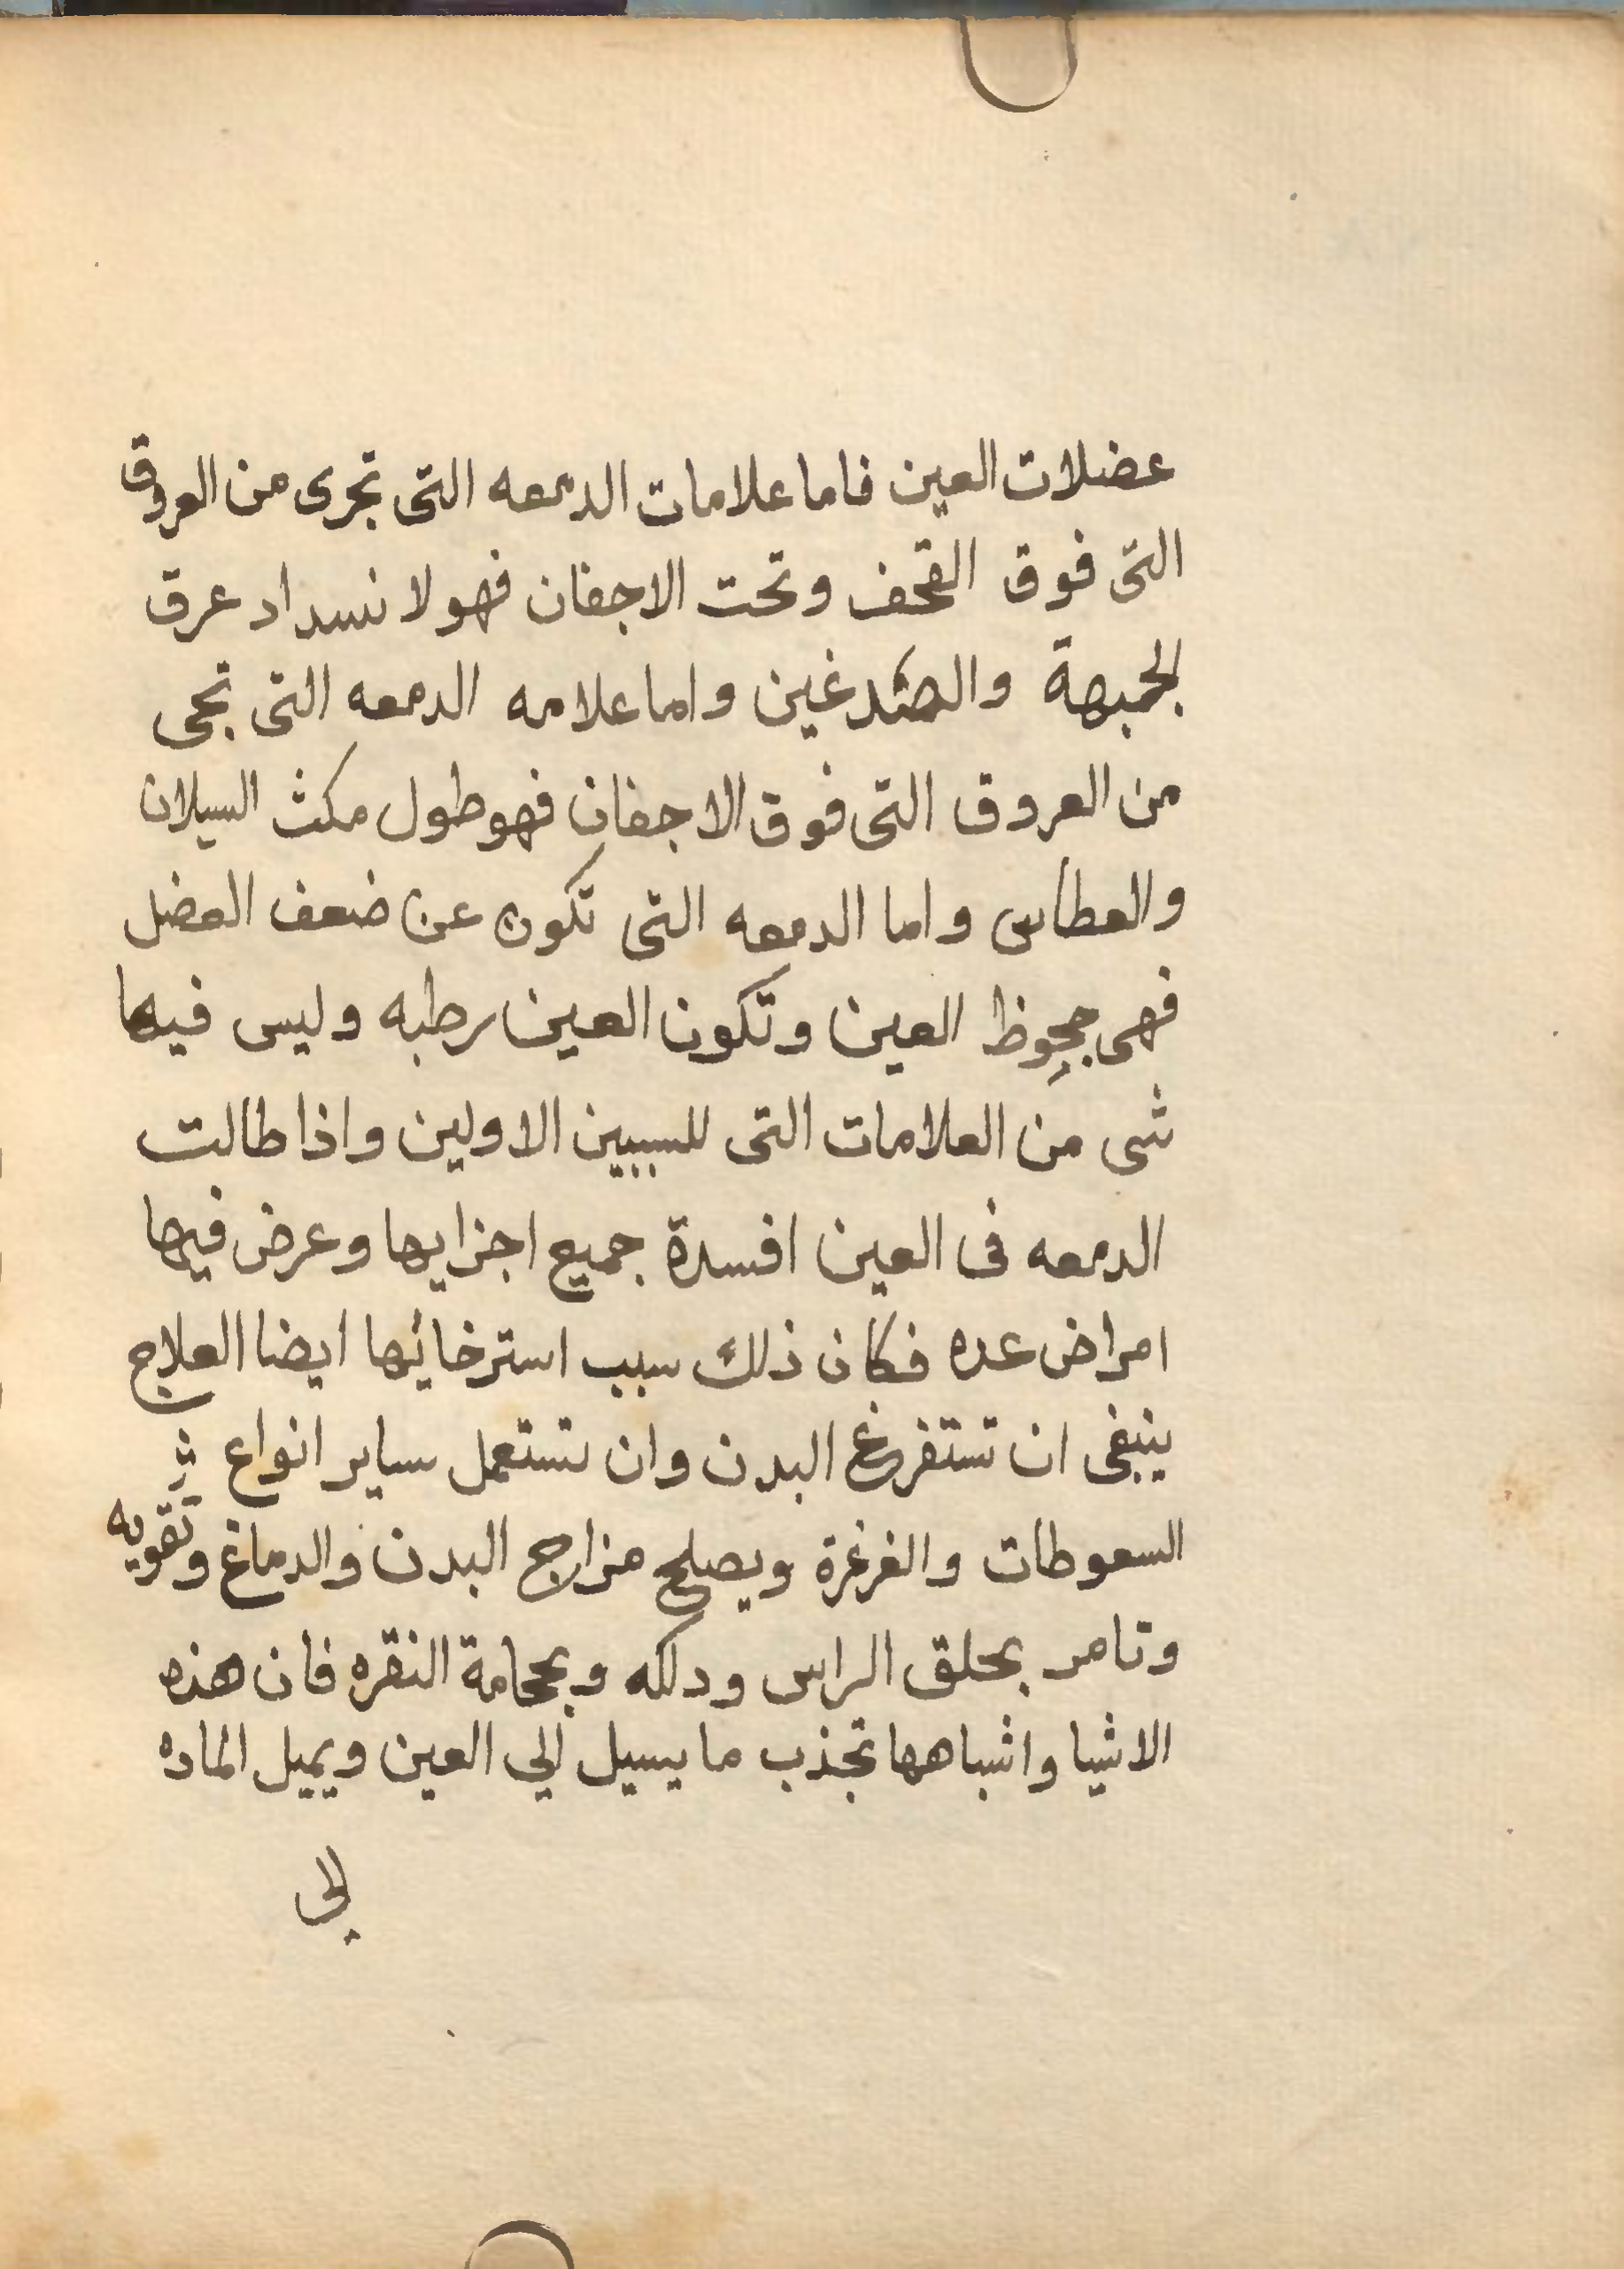 عضلات العين فاما علامات الدمعه التى تجرى من العروق
التى فوق القحف وتحت الاجفان فهو لانسداد عرق
الجبهة والصدغين واما علامه الدمعه التى تجى
من العروق التى فوق الاجفان فهو طول مكث السيلان
والعطاس واما الدمعه التى تكون عن ضعف العضل
فهى جحوظ العين وتكون العين رطبه وليس فيها
شى من العلامات التى للسببين الاولين واذا طالت
الدمعه فى العين افسدة جميع اجزايها وعرض فيها
امراض عده فكان ذلك سبب استرخائها ايضا العلاج
ينبغى ان تستفرغ البدن وان تستعمل ساير انواع
السعوطات والغرغرة ويصلح مزاج البدن والدماغ وتقويه
وتامر بحلق الراس ودلكه وبحجامة النقره فان هذه
الاشيا واشباهها تجذب ما يسيل الي العين ويميل الماده
الى